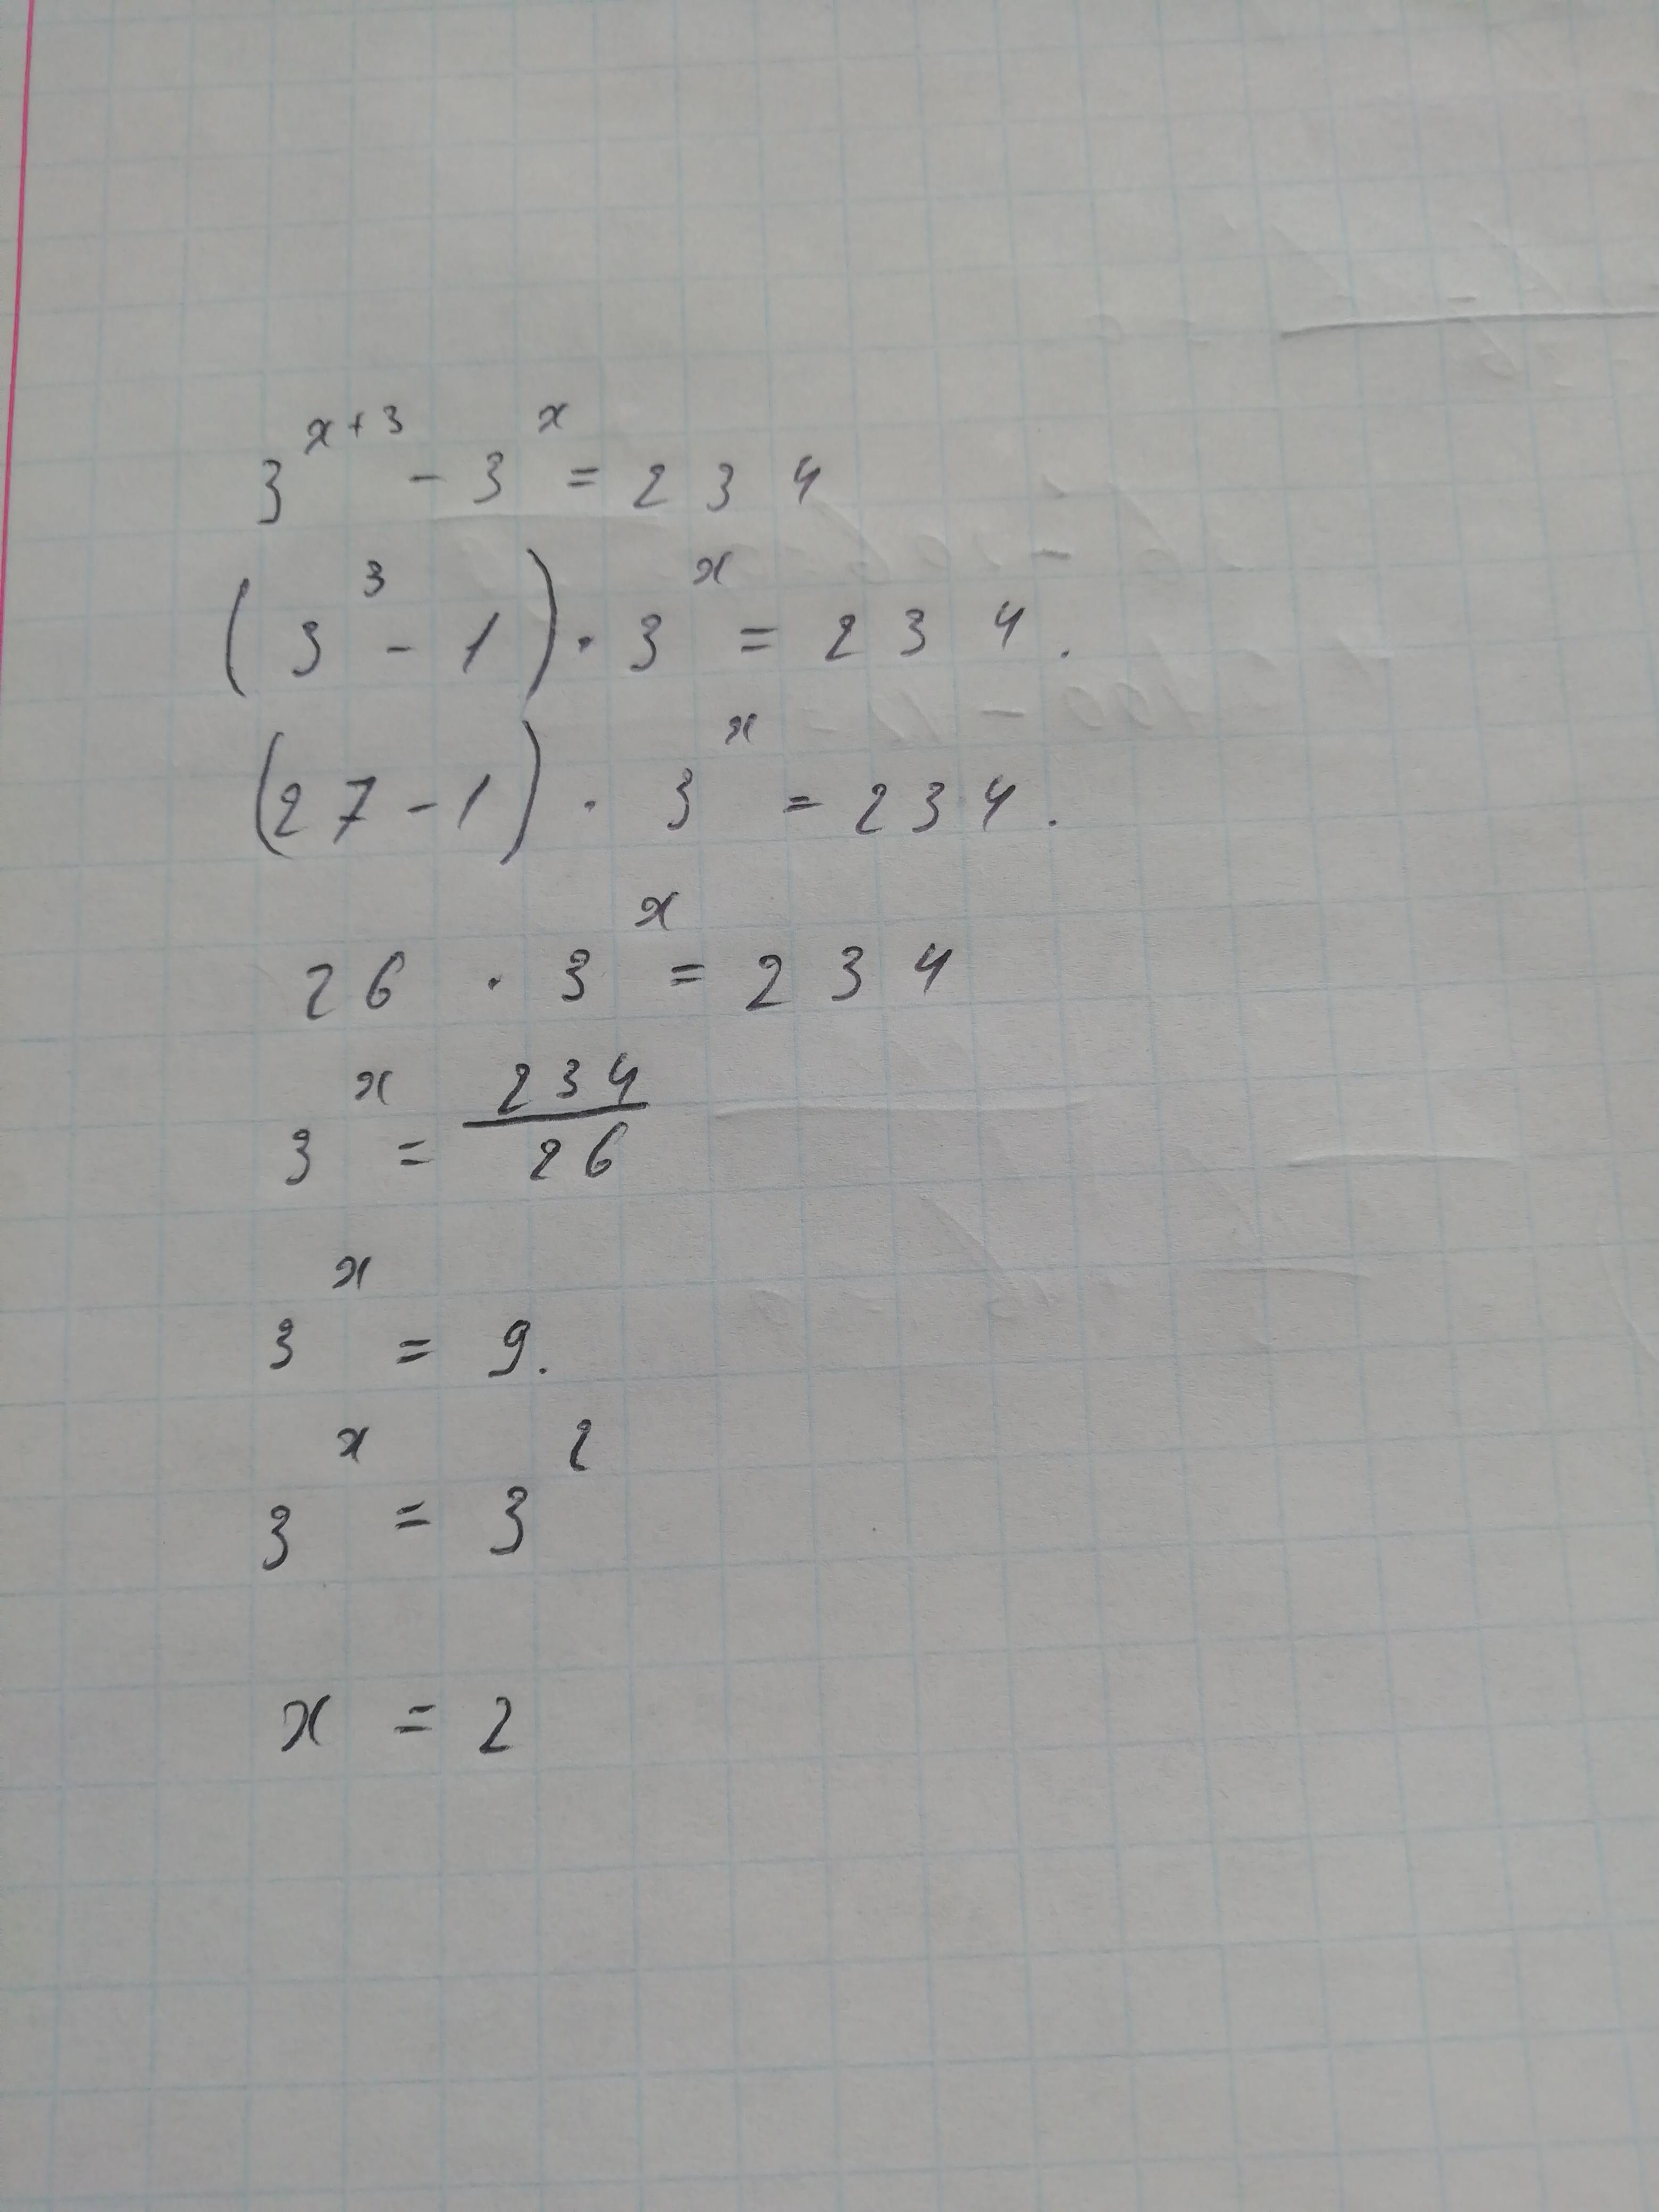 3^{x+3} - 3^x = 234
(3^3 - 1) · 3^x = 234.
(27 - 1) · 3^x = 234.
26 · 3^x = 234
3^x = \frac{234}{26}
3^x = 9.
3^x = 3^2
x = 2